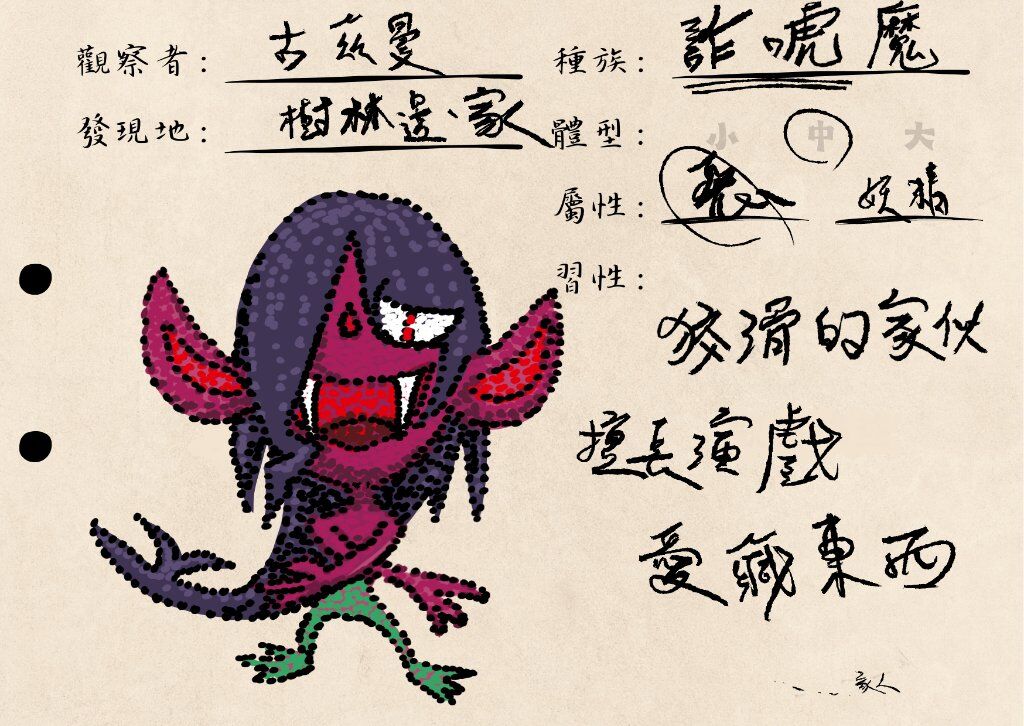 觀察者：古茲曼
種族：詐唬魔
發現地：樹林邊、家
體型：小 中 大
屬性： 妖精
習性：
狡滑的家伙
擅長演戲
愛藏東西
家人